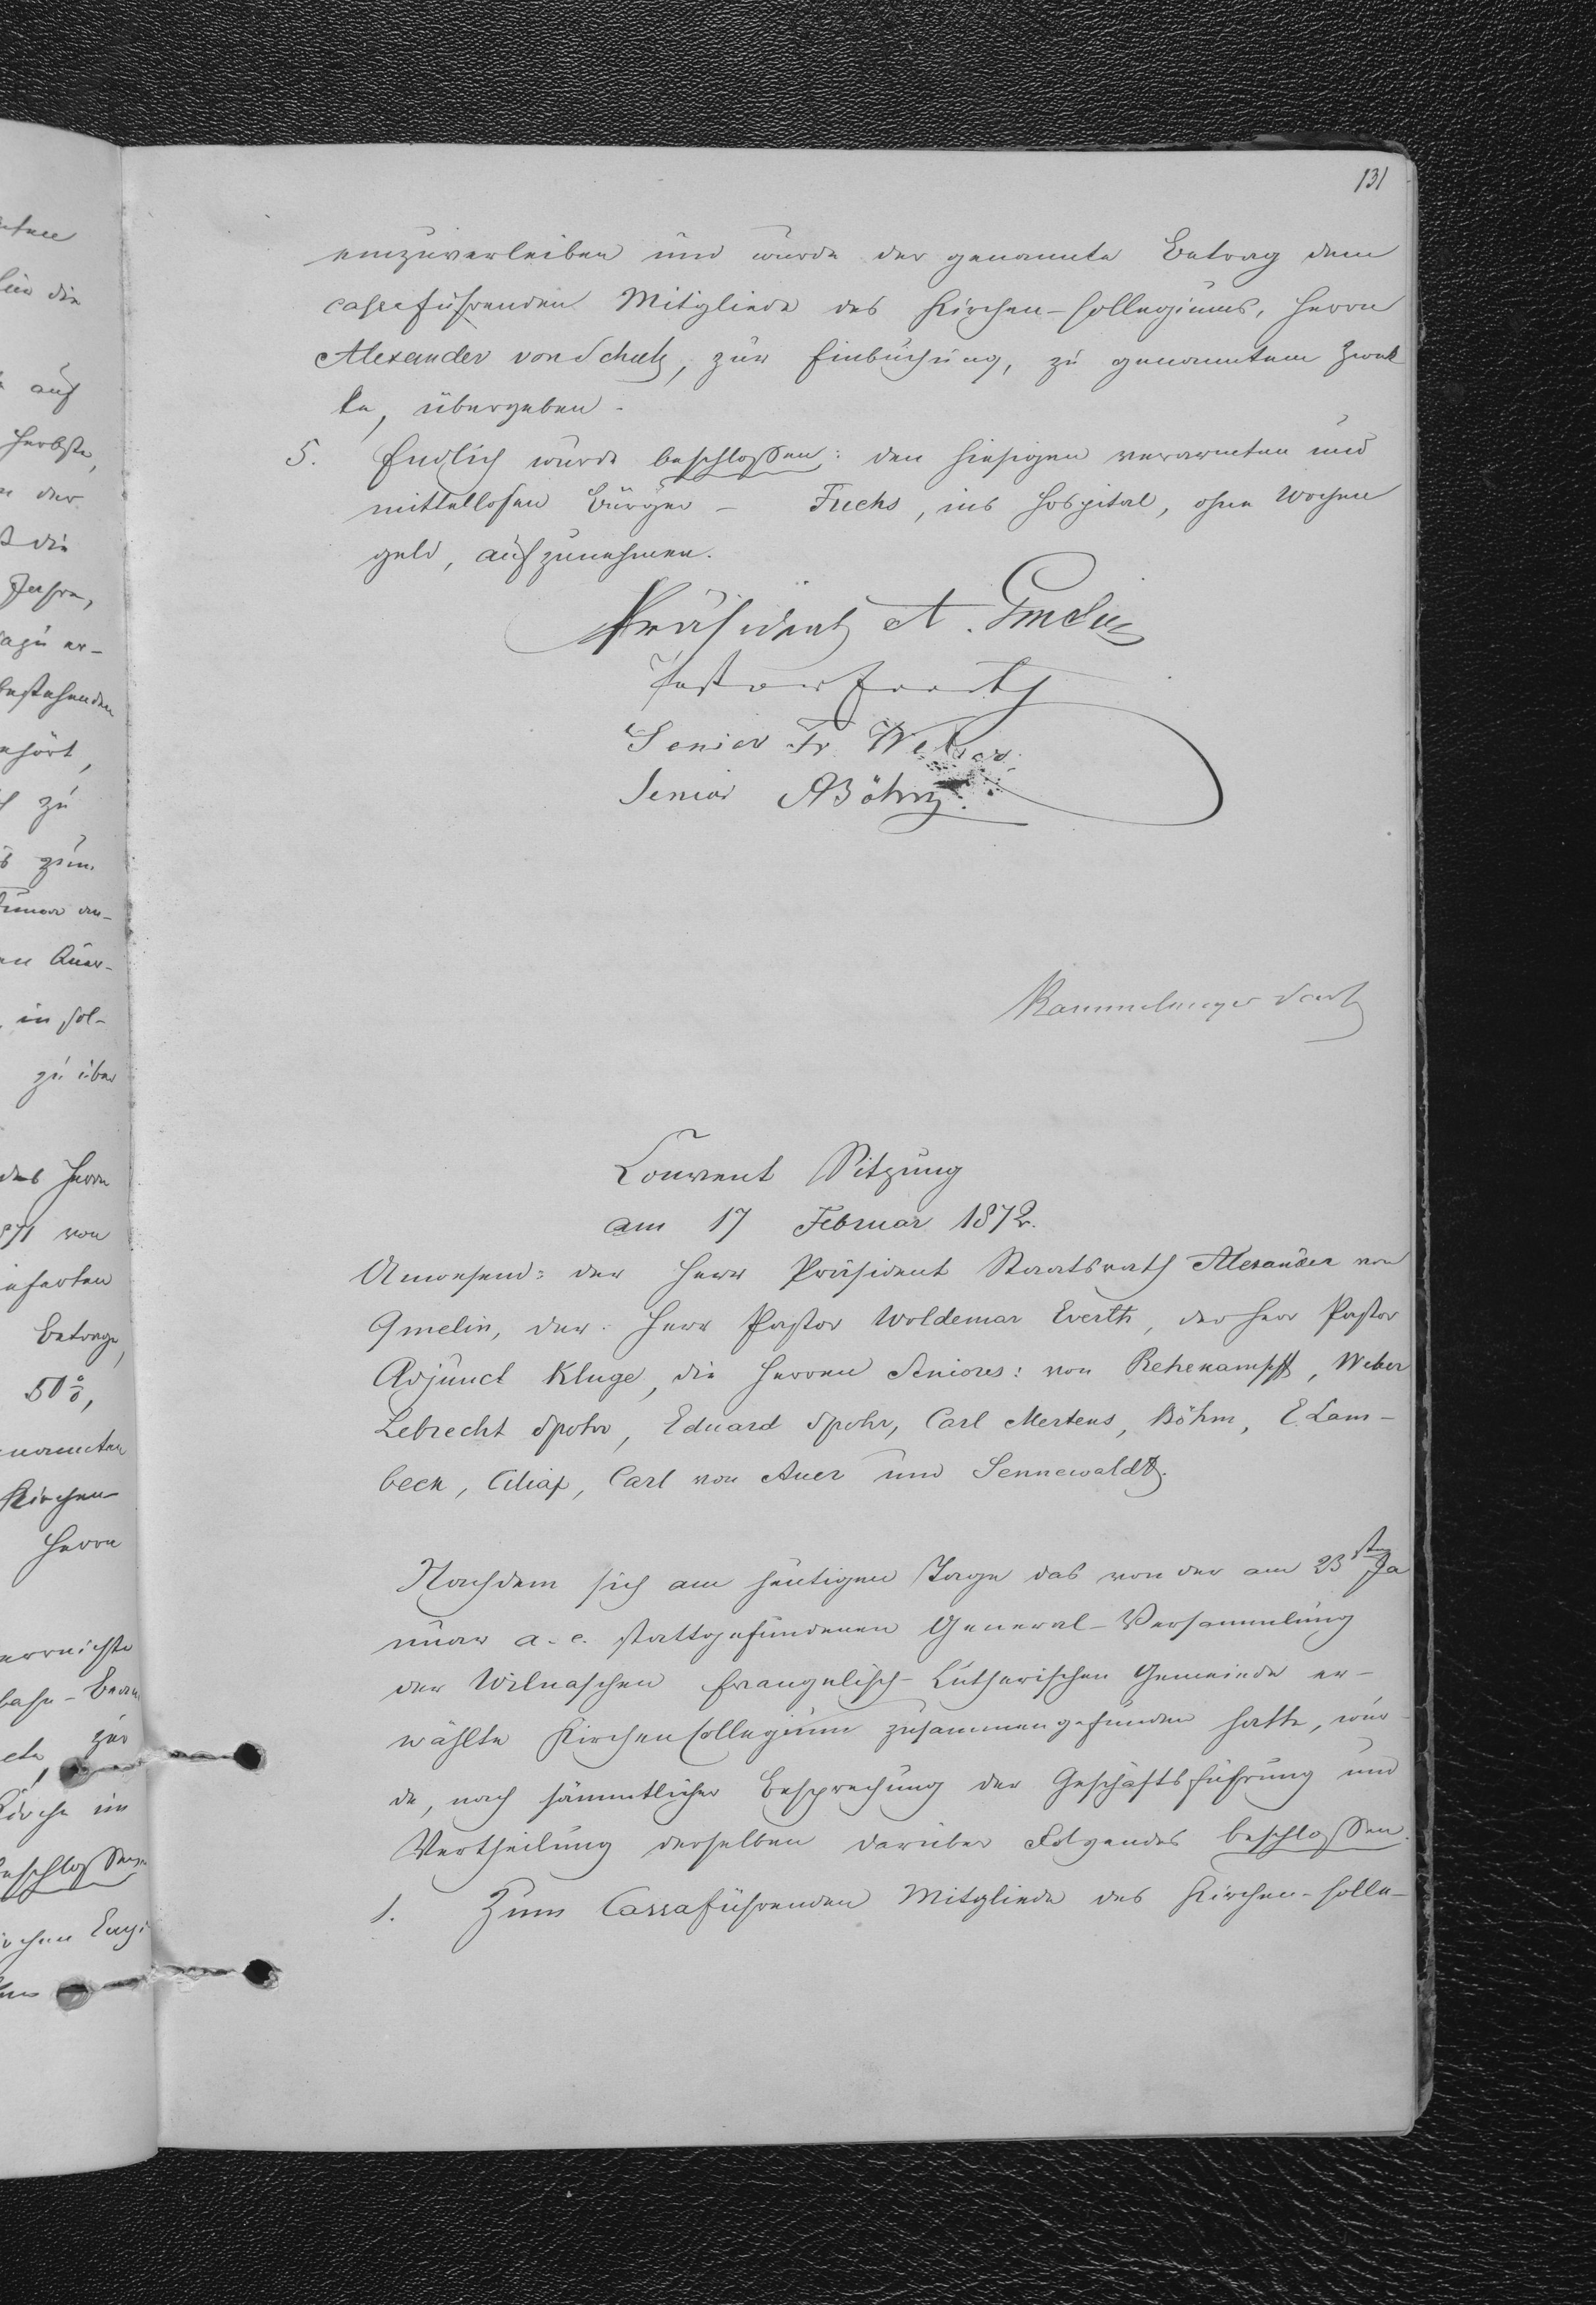 131
einzuverleiben und wurde der genannte Betrag dem
casseführenden Mitgliede des Kirchen-Collegiums, Herrn
Alexander von Schulz, zur Einbuchung, zu genanntem Zwek
ke, übergeben.
5. Endlich wurde beschloßen: den hiesigen verarmten und
mittellosen Bürger – Fuchs, ins Hospital, ohne Wochen
geld, aufzunehmen.
Präsident A. Gmelin
Pastor Everth
Senior Fr. Weber
Senior ABöhm.
Rammelmeyer
Convent Sitzung
am 17 Februar 1872.
Anwesend: der Herr Präsident Staatsrath Alexander von
Gmelin, der Herr Pastor Woldemar Everth, der Herr Pastor
Adjunct Kluge, die Herren Seniores: von Rehekampff, Weber
Lebrecht Spohr, Eduard Spohr, Carl Mertens, Böhm, E. Lam-
beck, Ciliax, Carl von Auer und Sennewaldt.
Nachdem sich am heutigen Tage das von der am 23sten Ja
nuar a. c. stattgefundenen General-Versammlung
der Wilnaschen Evangelisch-Lutherischen Gemeinde er-
wählte Kirchen Collegium zusammengefunden hatte, wur-
de, nach sämmtlicher Besprechung der Geschäftsführung und
Vertheilung derselben darüber Folgendes beschloßen.
1. Zum Cassaführenden Mitgliede des Kirchen-Colle-
auf
Herbste,
der
die
Jahre,
bestehenden
zu
zum
in sol-
zu über
des Herrn
von
Betrage,
50%,
Kirchen
Herrn
zur
Kirche im